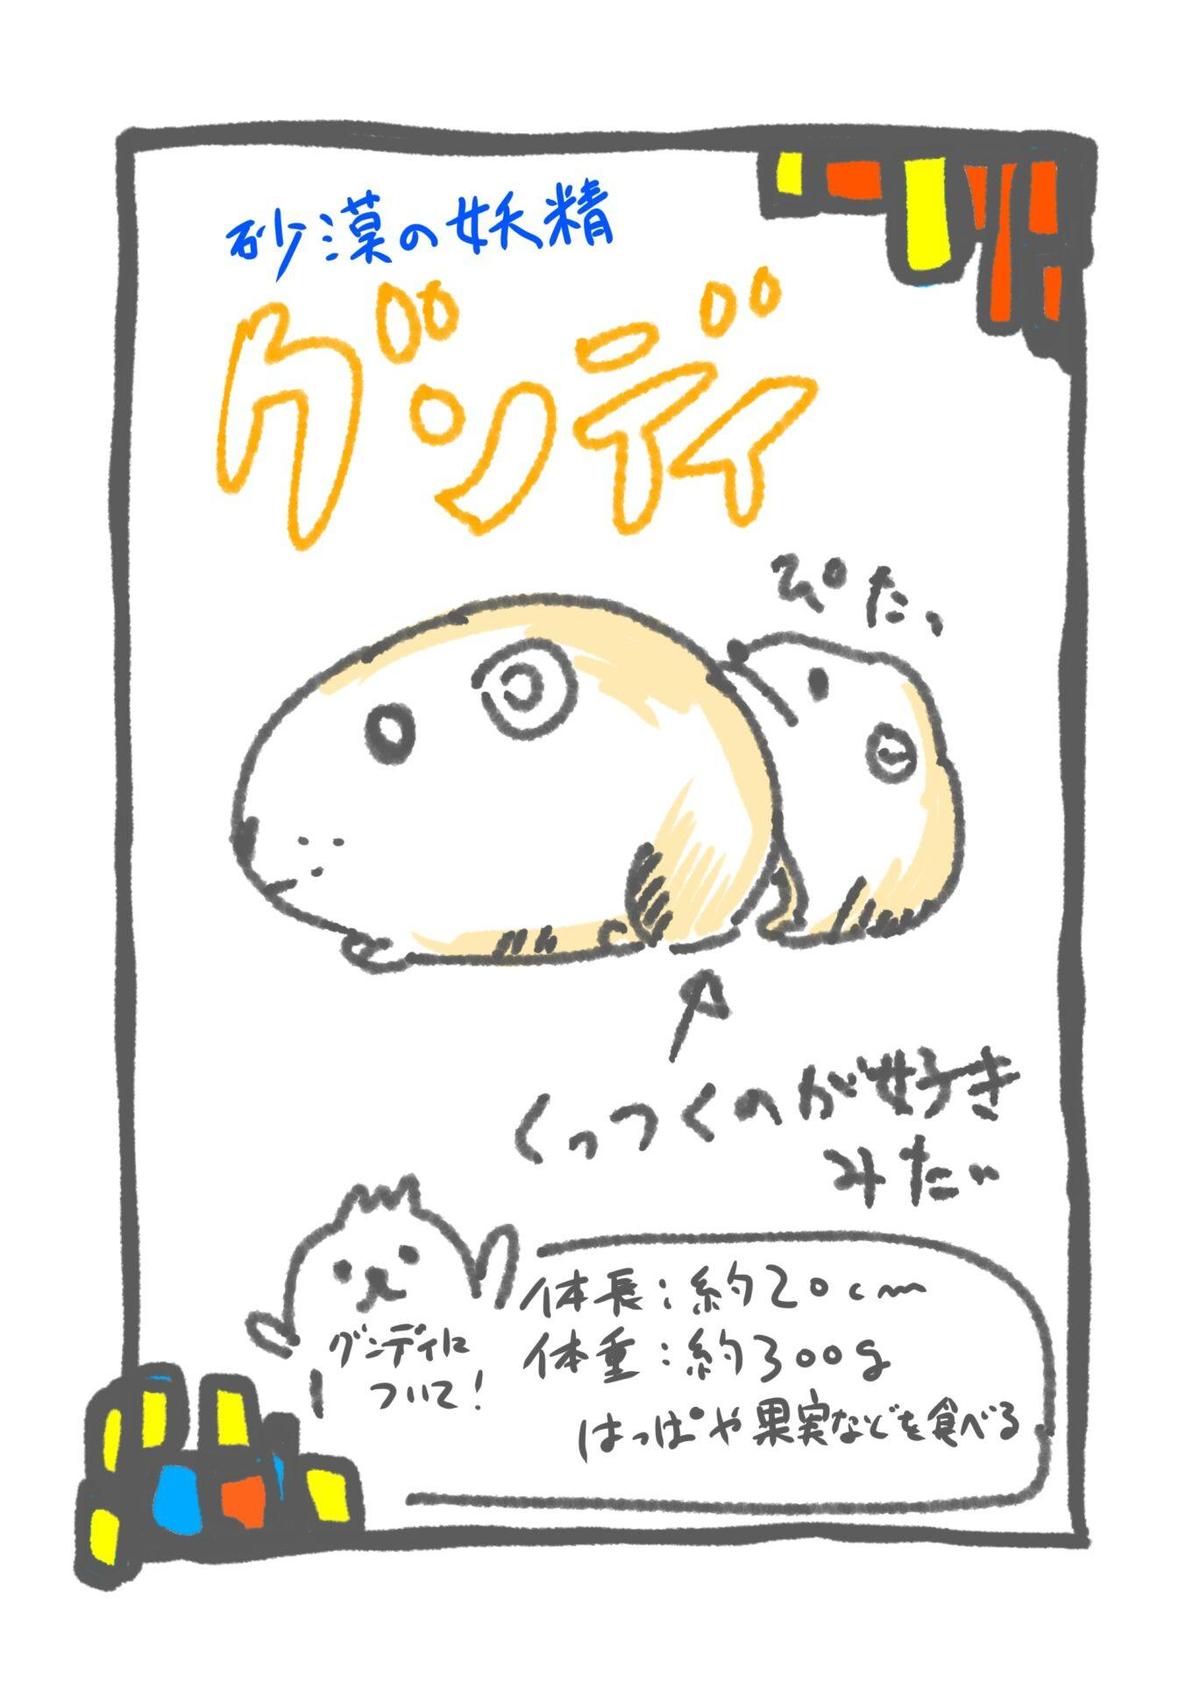 砂漠の妖精
グンディ
ぴたっ
くっつくのが好き
みたい
グンディに
ついて!
体長:約20cm
体重:約300g
はっぱや果実などを食べる